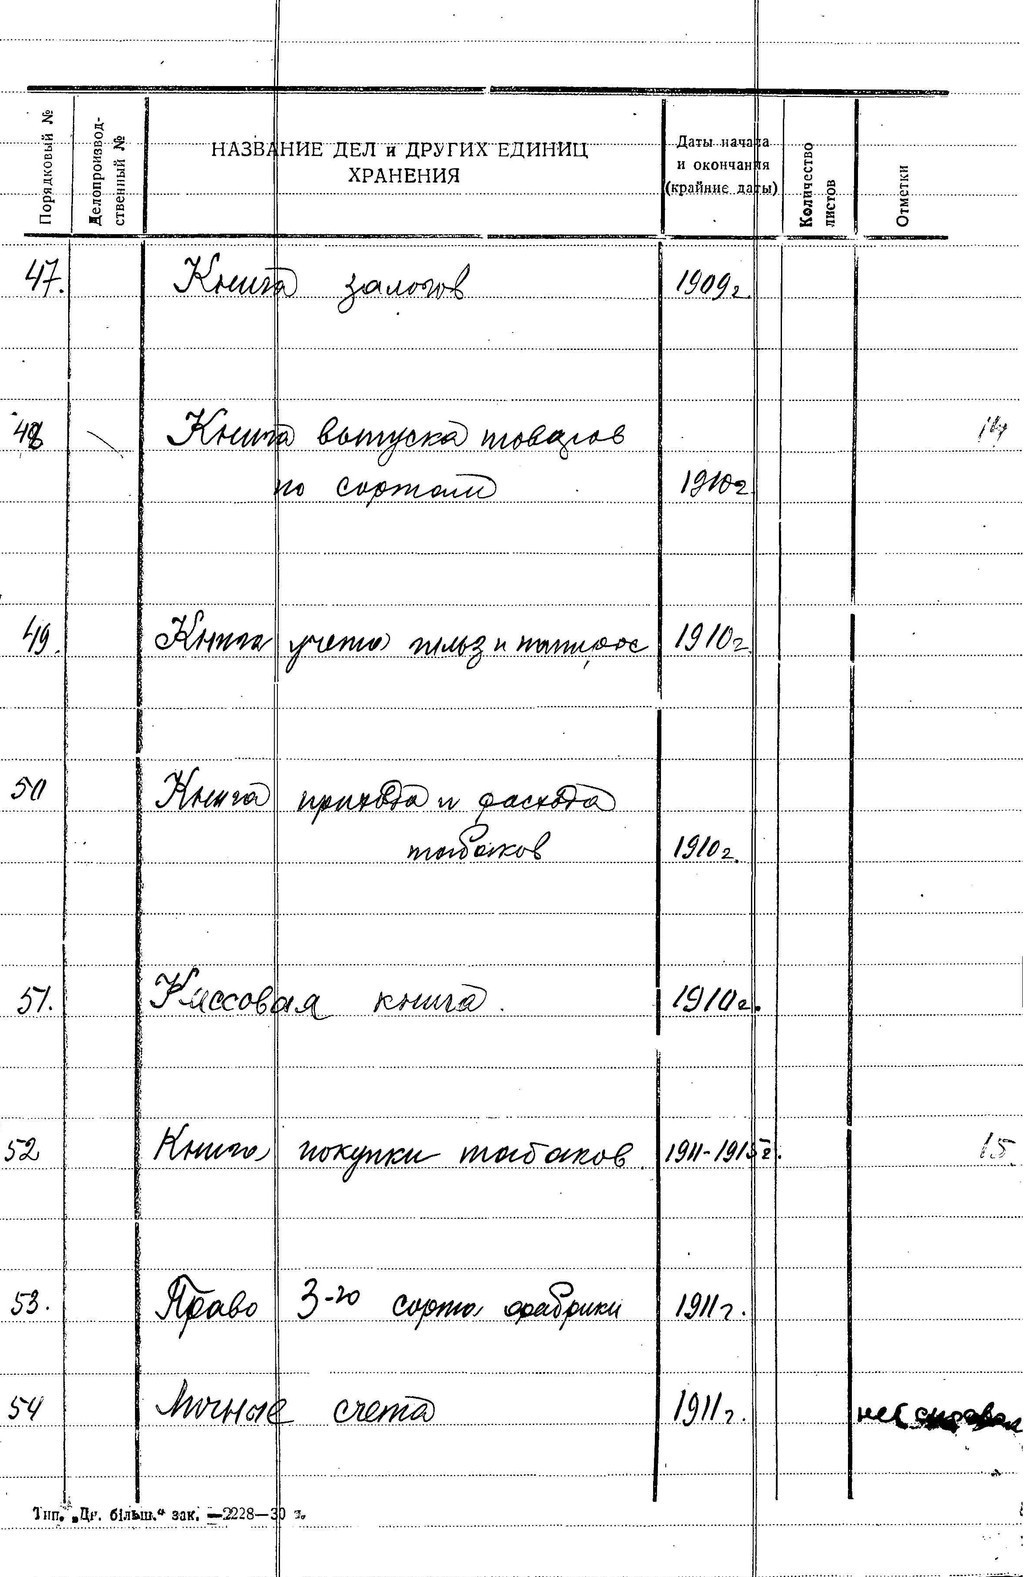 Порядковый №
Делопроизвод-
ственный №
НАЗВАНИЕ ДЕЛ и ДРУГИХ ЕДИНИЦ
ХРАНЕНИЯ
Даты начала
и окончания
(крайние даты)
Количество
листов
Отметки
47. Книга залогов 1909г
48 Книга выпуска товаров
по сортам 1910г
49. Книга учета гильз и папирос 1910г.
50 Книга прихода и расхода
табаков 1910г.
51. Кассовая книга. 1910г.
52 Книга покупки табаков. 1911-1915г. 15
53. Право 3-го сорта фабрики 1911г.
54 Личные счета 1911г.
Тип. „Др. більш.“ зак. —2228—30 т.